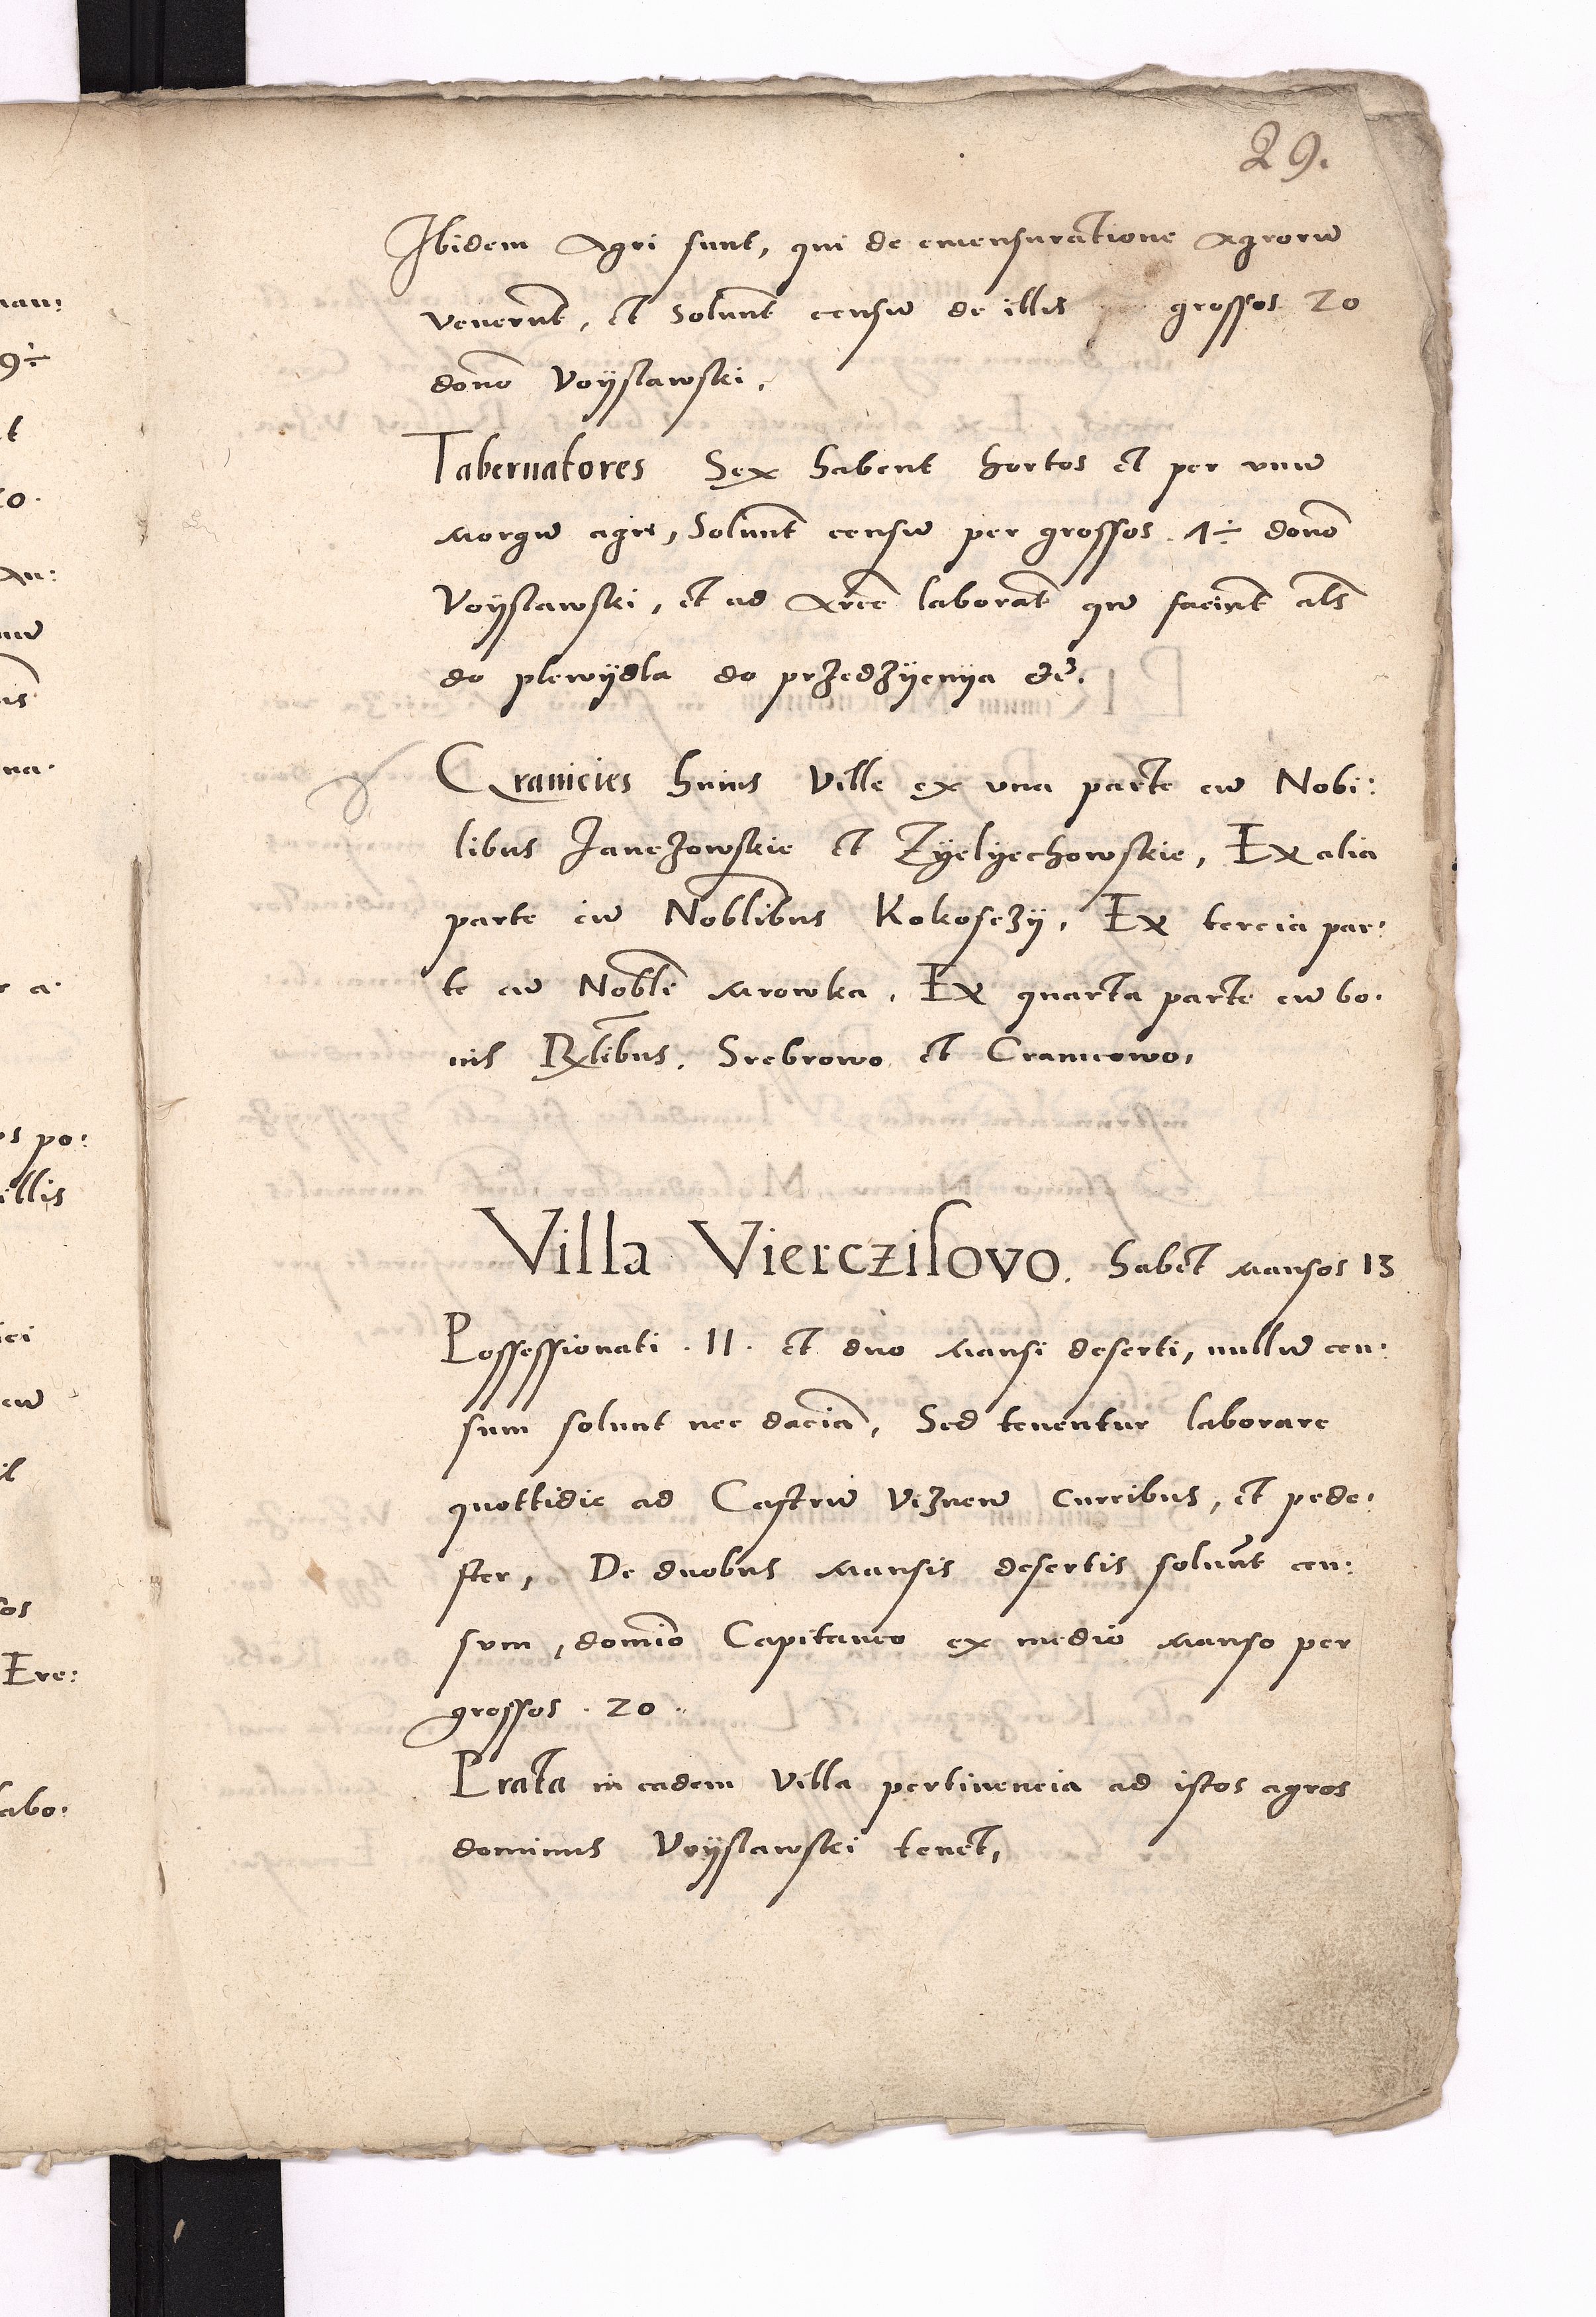 29.
Ibidem Agri sunt, qui de emensuratione Agrorū
venerūt, et Solunt censū de illis grossos 20
dōno Voÿslawski.
Tabernatores Sex habent hortos et per vnū
Morgū agri, Solunt censū per grossos 1÷ dōno
Voÿslawski, et ad Arcē laborāt qn̄ faciūt als
do plewÿdla do przedzÿenÿa etc̄.
Granicies huius Ville ex vna parte cū Nobi:
libus Janczowskie et Zÿelÿechowskie, Ex alia
parte cū Noblibus Kokosczÿ, Ex tercia par:
te cū Noblē Mrowka. Ex quarta parte cū bo:
nis Rlibus. Srebrowo et Cramcowo,
Villa Vierczilovo. habet Mansos 13
Possessionati . 11 . et duo Mansi deserti, nullū cen:
sum solunt nec daciā, Sed tenentur laborare
quottidie ad Castrū Viznen̄ Curribus, et pede:
ster, De duobus Mansis desertis solunt cen:
sum, domīo Capitaneo ex medio Manso per
grossos . 20 .
Prata in eadem Villa pertinencia ad istos agros
dominus Voÿslawski tenet,